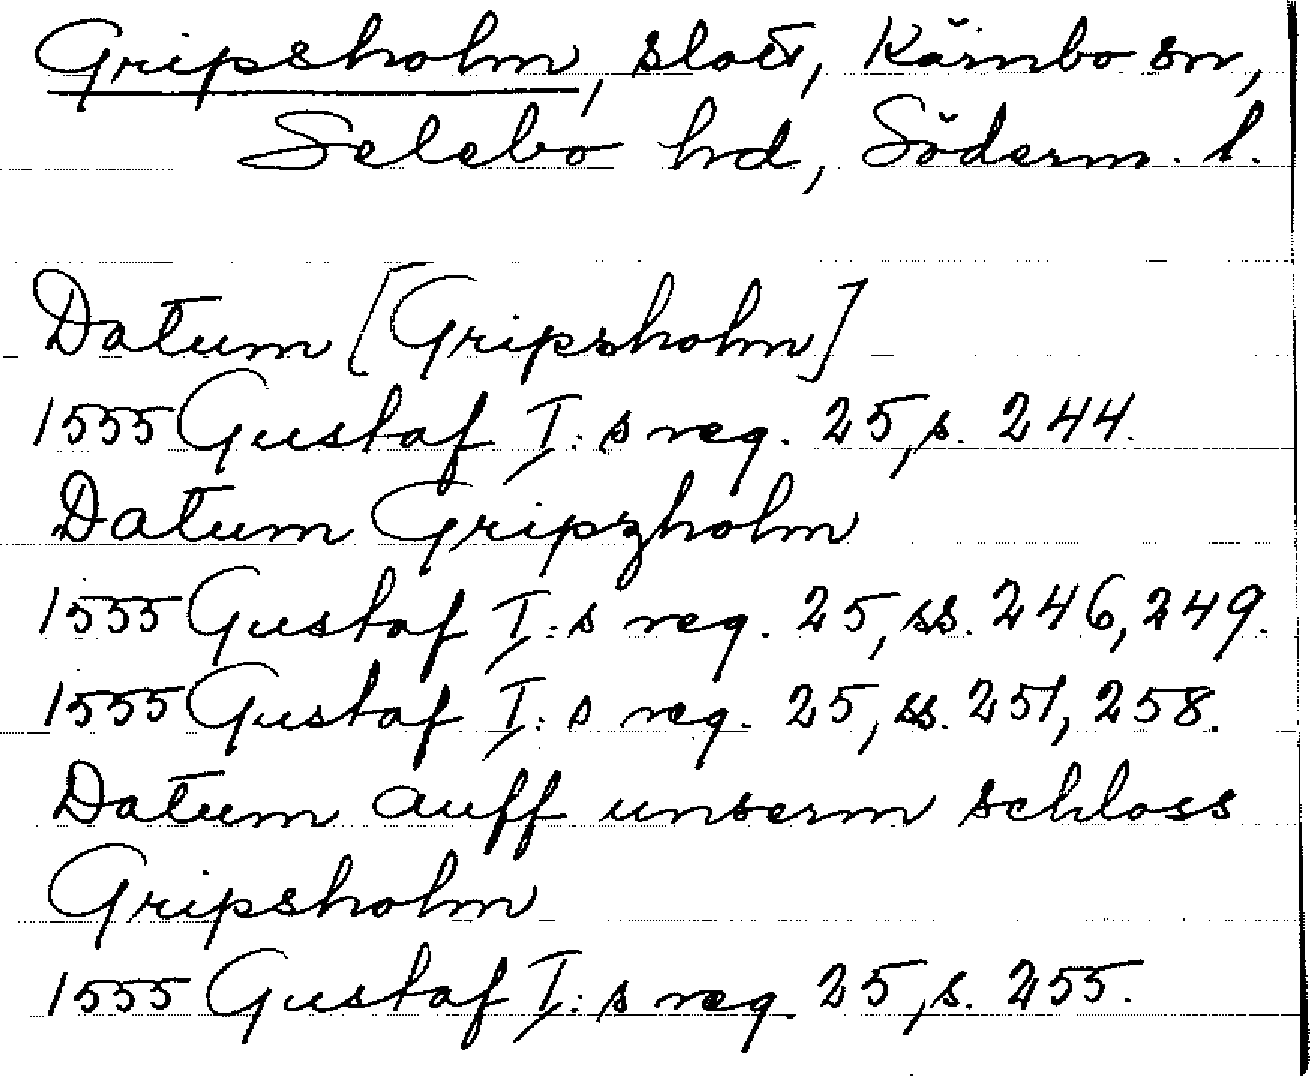 Gripsholm, slott, Kärnbo sn,
Selebo hd, Söderm. l.
Datum [Gripsholm]
1555 Gustaf I: s reg. 25, s. 244.
Datum Gripzholm
1555 Gustaf I: s reg. 25, ss. 246, 249.
1555 Gustaf I: s reg. 25, ss. 251, 258.
Datum auff unserm schloss
Gripsholm
1555 Gustaf I: s reg. 25, s. 255.